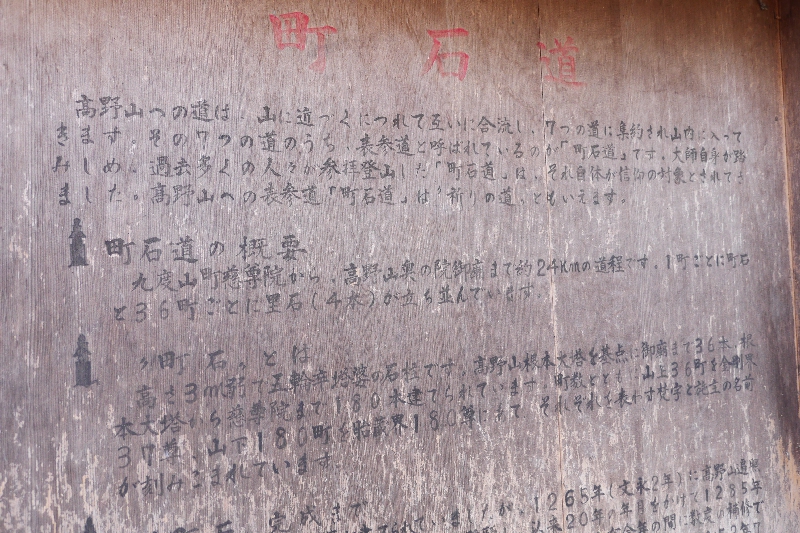 町石道
高野山への道は、山に近づくにつれて互いに合流し、7つの道に集約され山内に入って
きます。その7つの道のうち、表参道と呼ばれているのが「町石道」です。大師自身が踏
みしめ、過去多くの人々が参拝登山した「町石道」は、それ自体が信仰の対象とされてき
ました。高野山への表参道「町石道」は〝祈りの道〟ともいえます。
町石道の概要
九度山町慈尊院から、高野山奥の院御廟まで約24Kmの道程です。1町ごとに町石
と36町ごとに里石(4本)が立ち並んでいます。
〝町石〟とは
高さ3m弱で五輪卒塔婆の石柱です。高野山根本大塔を基点に御廟まで36本、根
本大塔から慈尊院まで180本建てられています。町数とともに山上36町を金剛界
37尊、山下180町を胎蔵界180尊にあて、それぞれを表わす梵字と施主の名前
が刻みこまれています。
町石 完成まで
られていましたが、1265年(文永2年)に高野山遍照
以来20年の年月をかけて1285年